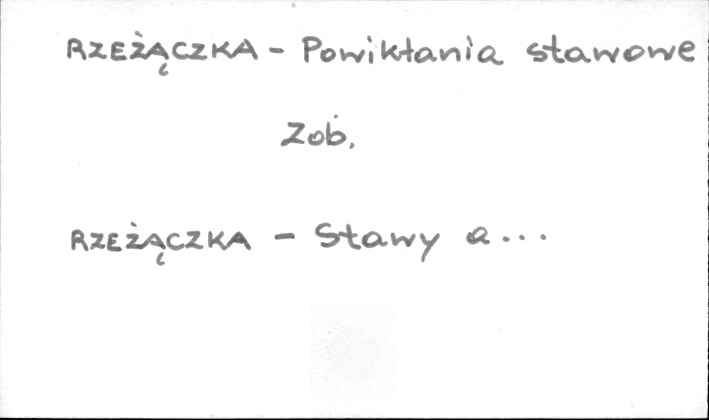 RZEŻĄCZKA - Powikłania stawowe
Zob.
RZEŻĄCZKA - Stawy a...